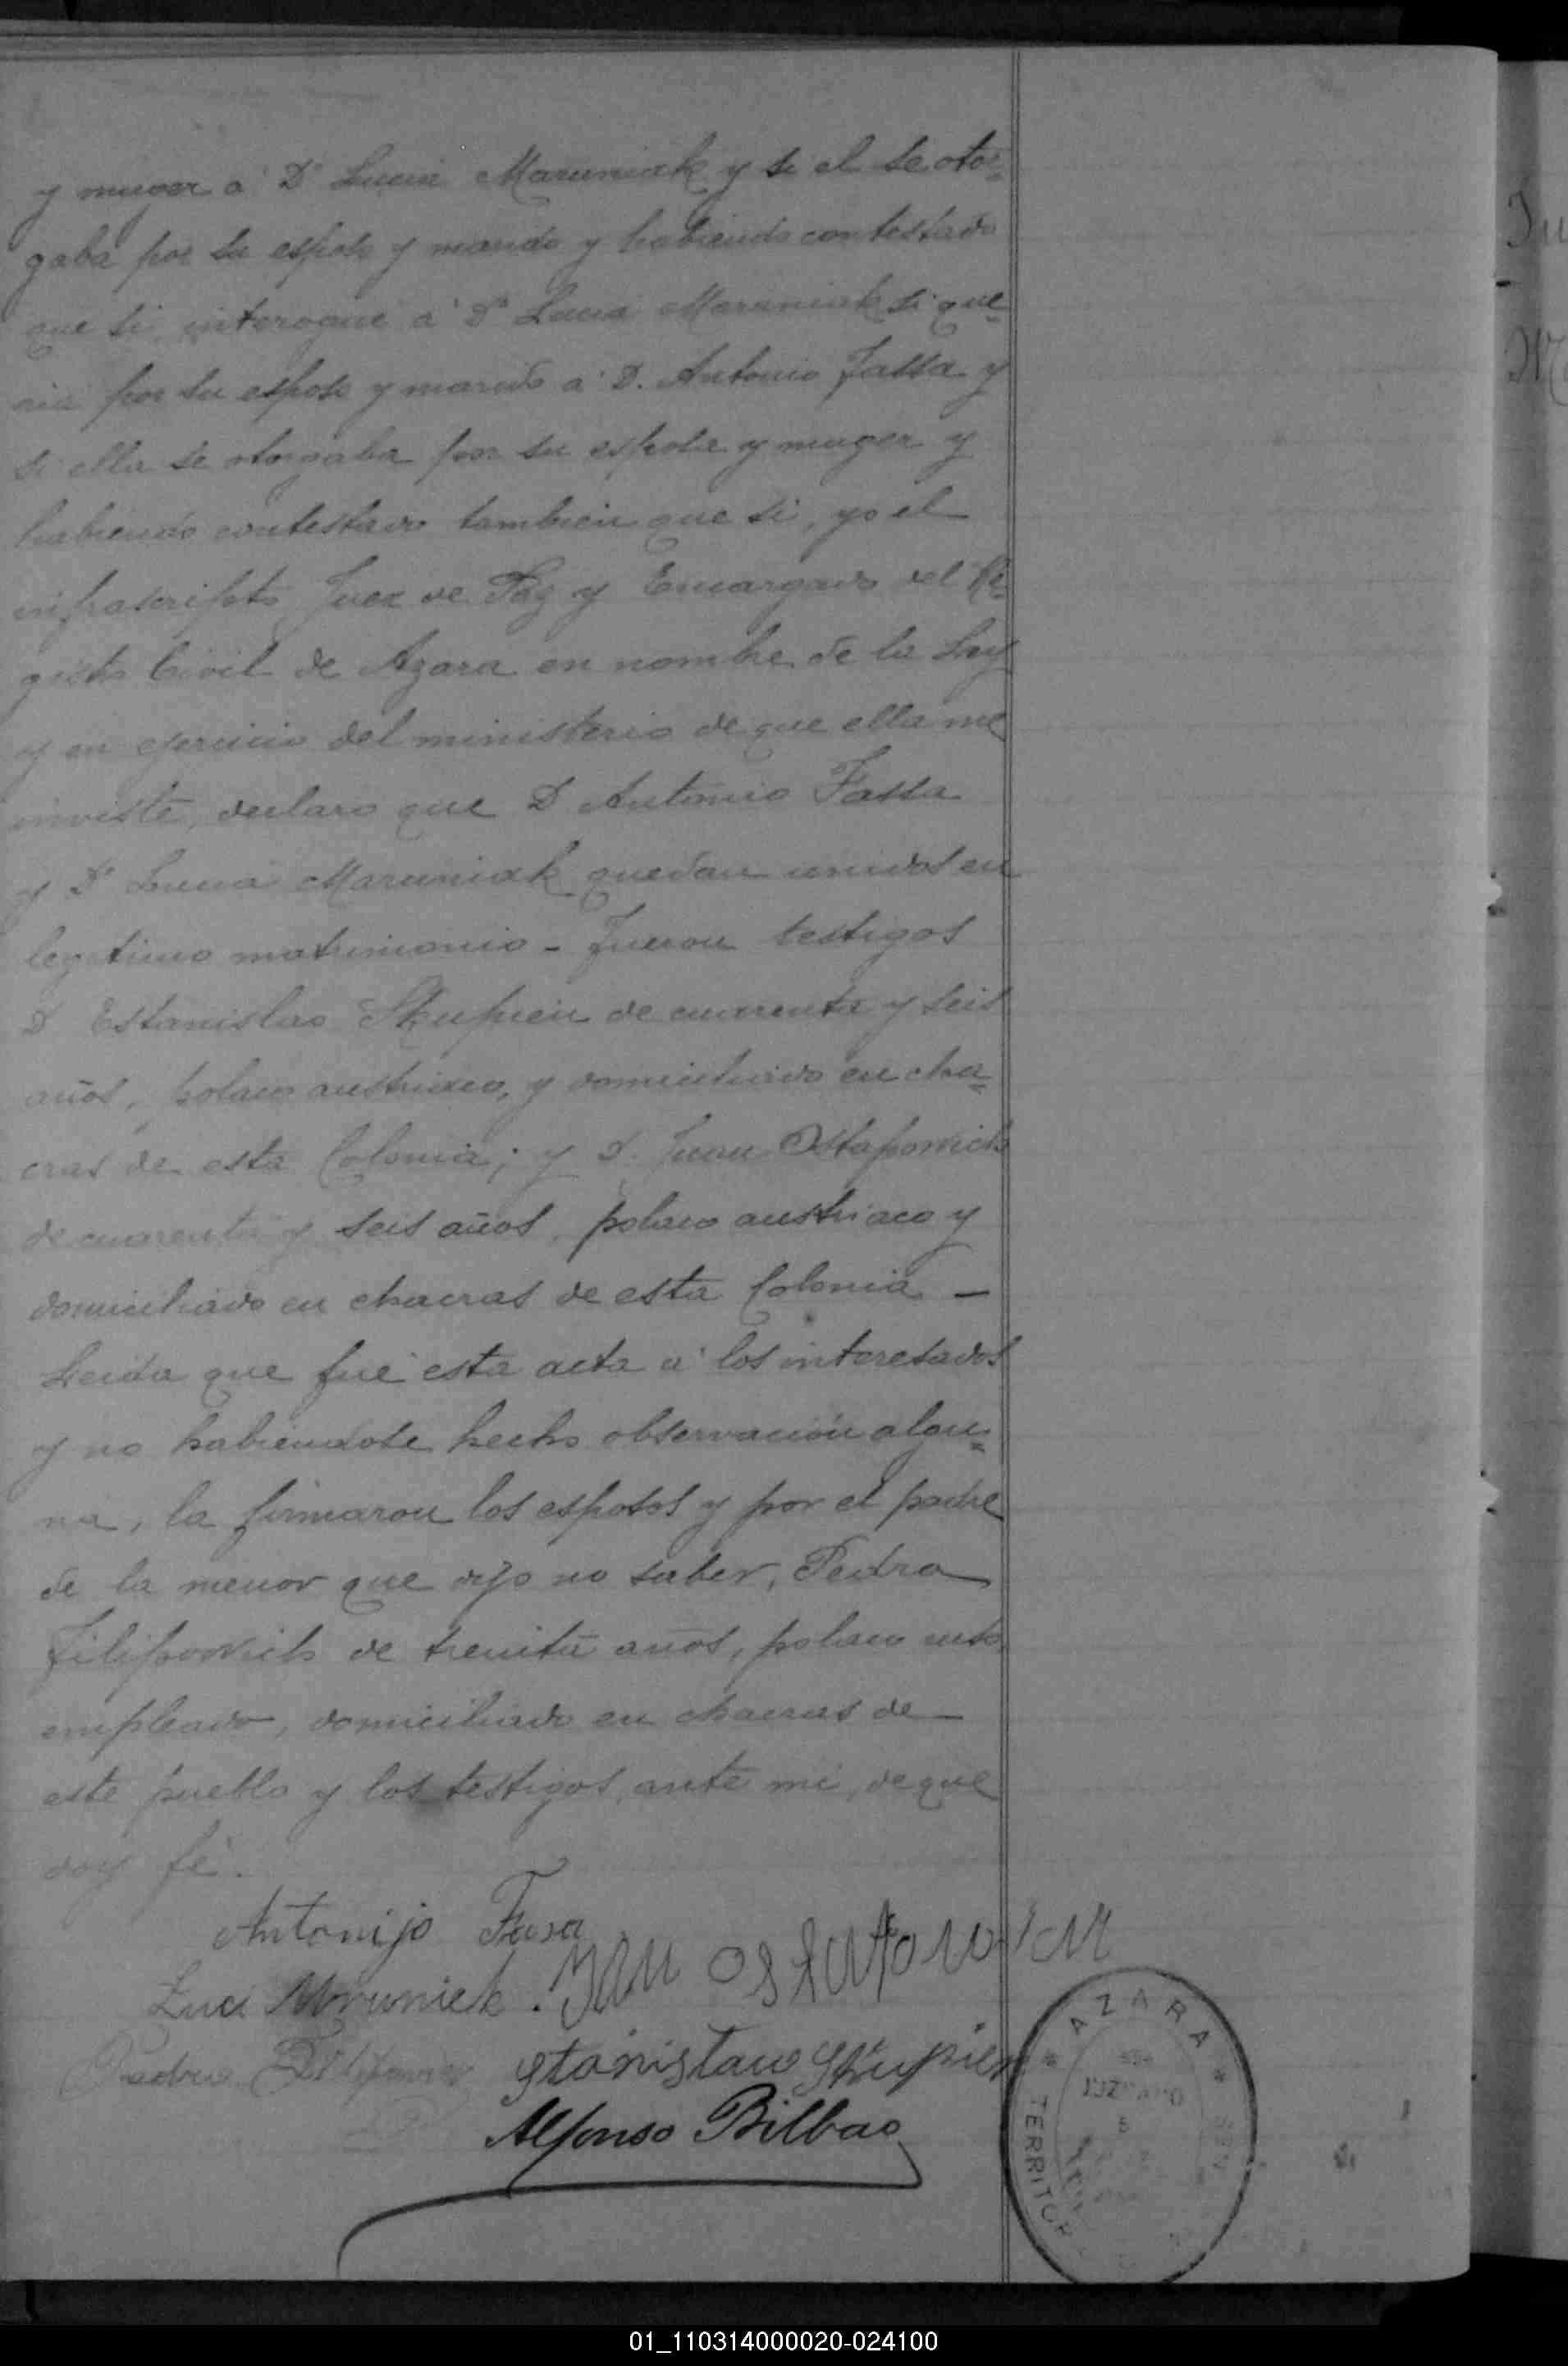 y muger a Dª Lucia Maruniak y si el se otor=
gaba por su esposo y marido y habiendo contestado
que si, interogué a Dª Lucia Maruniak si que=
ria por su esposo y marido a D. Antonio Fassa y
si ella se otorgaba por su esposa y muger y
habiendo contestado tambien que si, yo el
infrascripto Juez de Paz y Encargado del Re=
gistro Civil de Azara en nombre de la Ley
y en ejercicio del ministerio de que ella me
inviste, declaro que D Antonio Fassa
y Dª Lucia Maruniak quedan unidos en
legitimo matrimonio - Fueron testigos
D Estanislao Skupien de cuarenta y seis
años, polaco austriaco, y domiciliado en cha=
cras de esta Colonia; y D. Juan Ostapowich
de cuarenta y seis años, polaco austriaco y
domiciliado en chacras de esta Colonia —
Leida que fué esta acta a los interesados
y no habiendose hecho observación algu=
na, la firmaron los esposos y por el padre
de la menor que dijo no saber, Pedro
Filipowich de treinta años, polaco ruso,
empleado, domiciliado en chacras de
este pueblo y los testigos, ante mi, de que
doy fé.
Antonijo Fasa
Luci Mruniek. Jan
Stanislaw Skupien
Alfonso Bilbao
* AZARA *
JUZGADO
TERRITOR
01_110314000020-024100